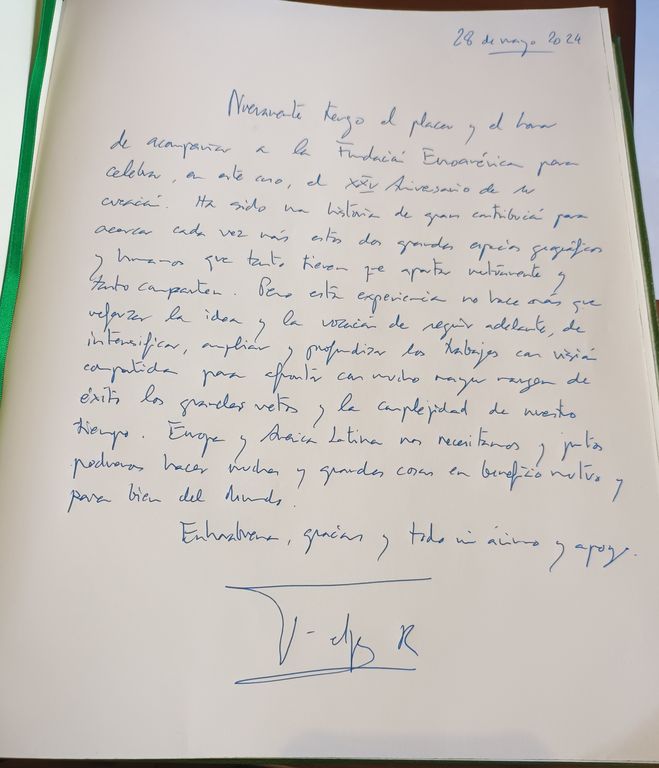 28 de mayo 2024
Nuevamente tengo el placer y el honor
de acompañar a la Fundación Euroamérica para
celebrar, en este caso, el XXV Aniversario de su
creación. Ha sido una historia de gran contribución para
acercar cada vez más estos dos grandes espacios geográficos
y humanos que tanto tienen que aportar mutuamente y
tanto comparten. Pero esta experiencia no hace más que
reforzar la idea y la vocación de seguir adelante, de
intensificar, ampliar y profundizar los trabajos con visión
compartida para afrontar con mucho mayor margen de
éxito los grandes retos y la complejidad de nuestro
tiempo. Europa y América Latina nos necesitamos y juntos
podremos hacer muchas y grandes cosas en beneficio mutuo y
para bien del Mundo.
Enhorabuena, gracias y todo mi ánimo y apoyo.